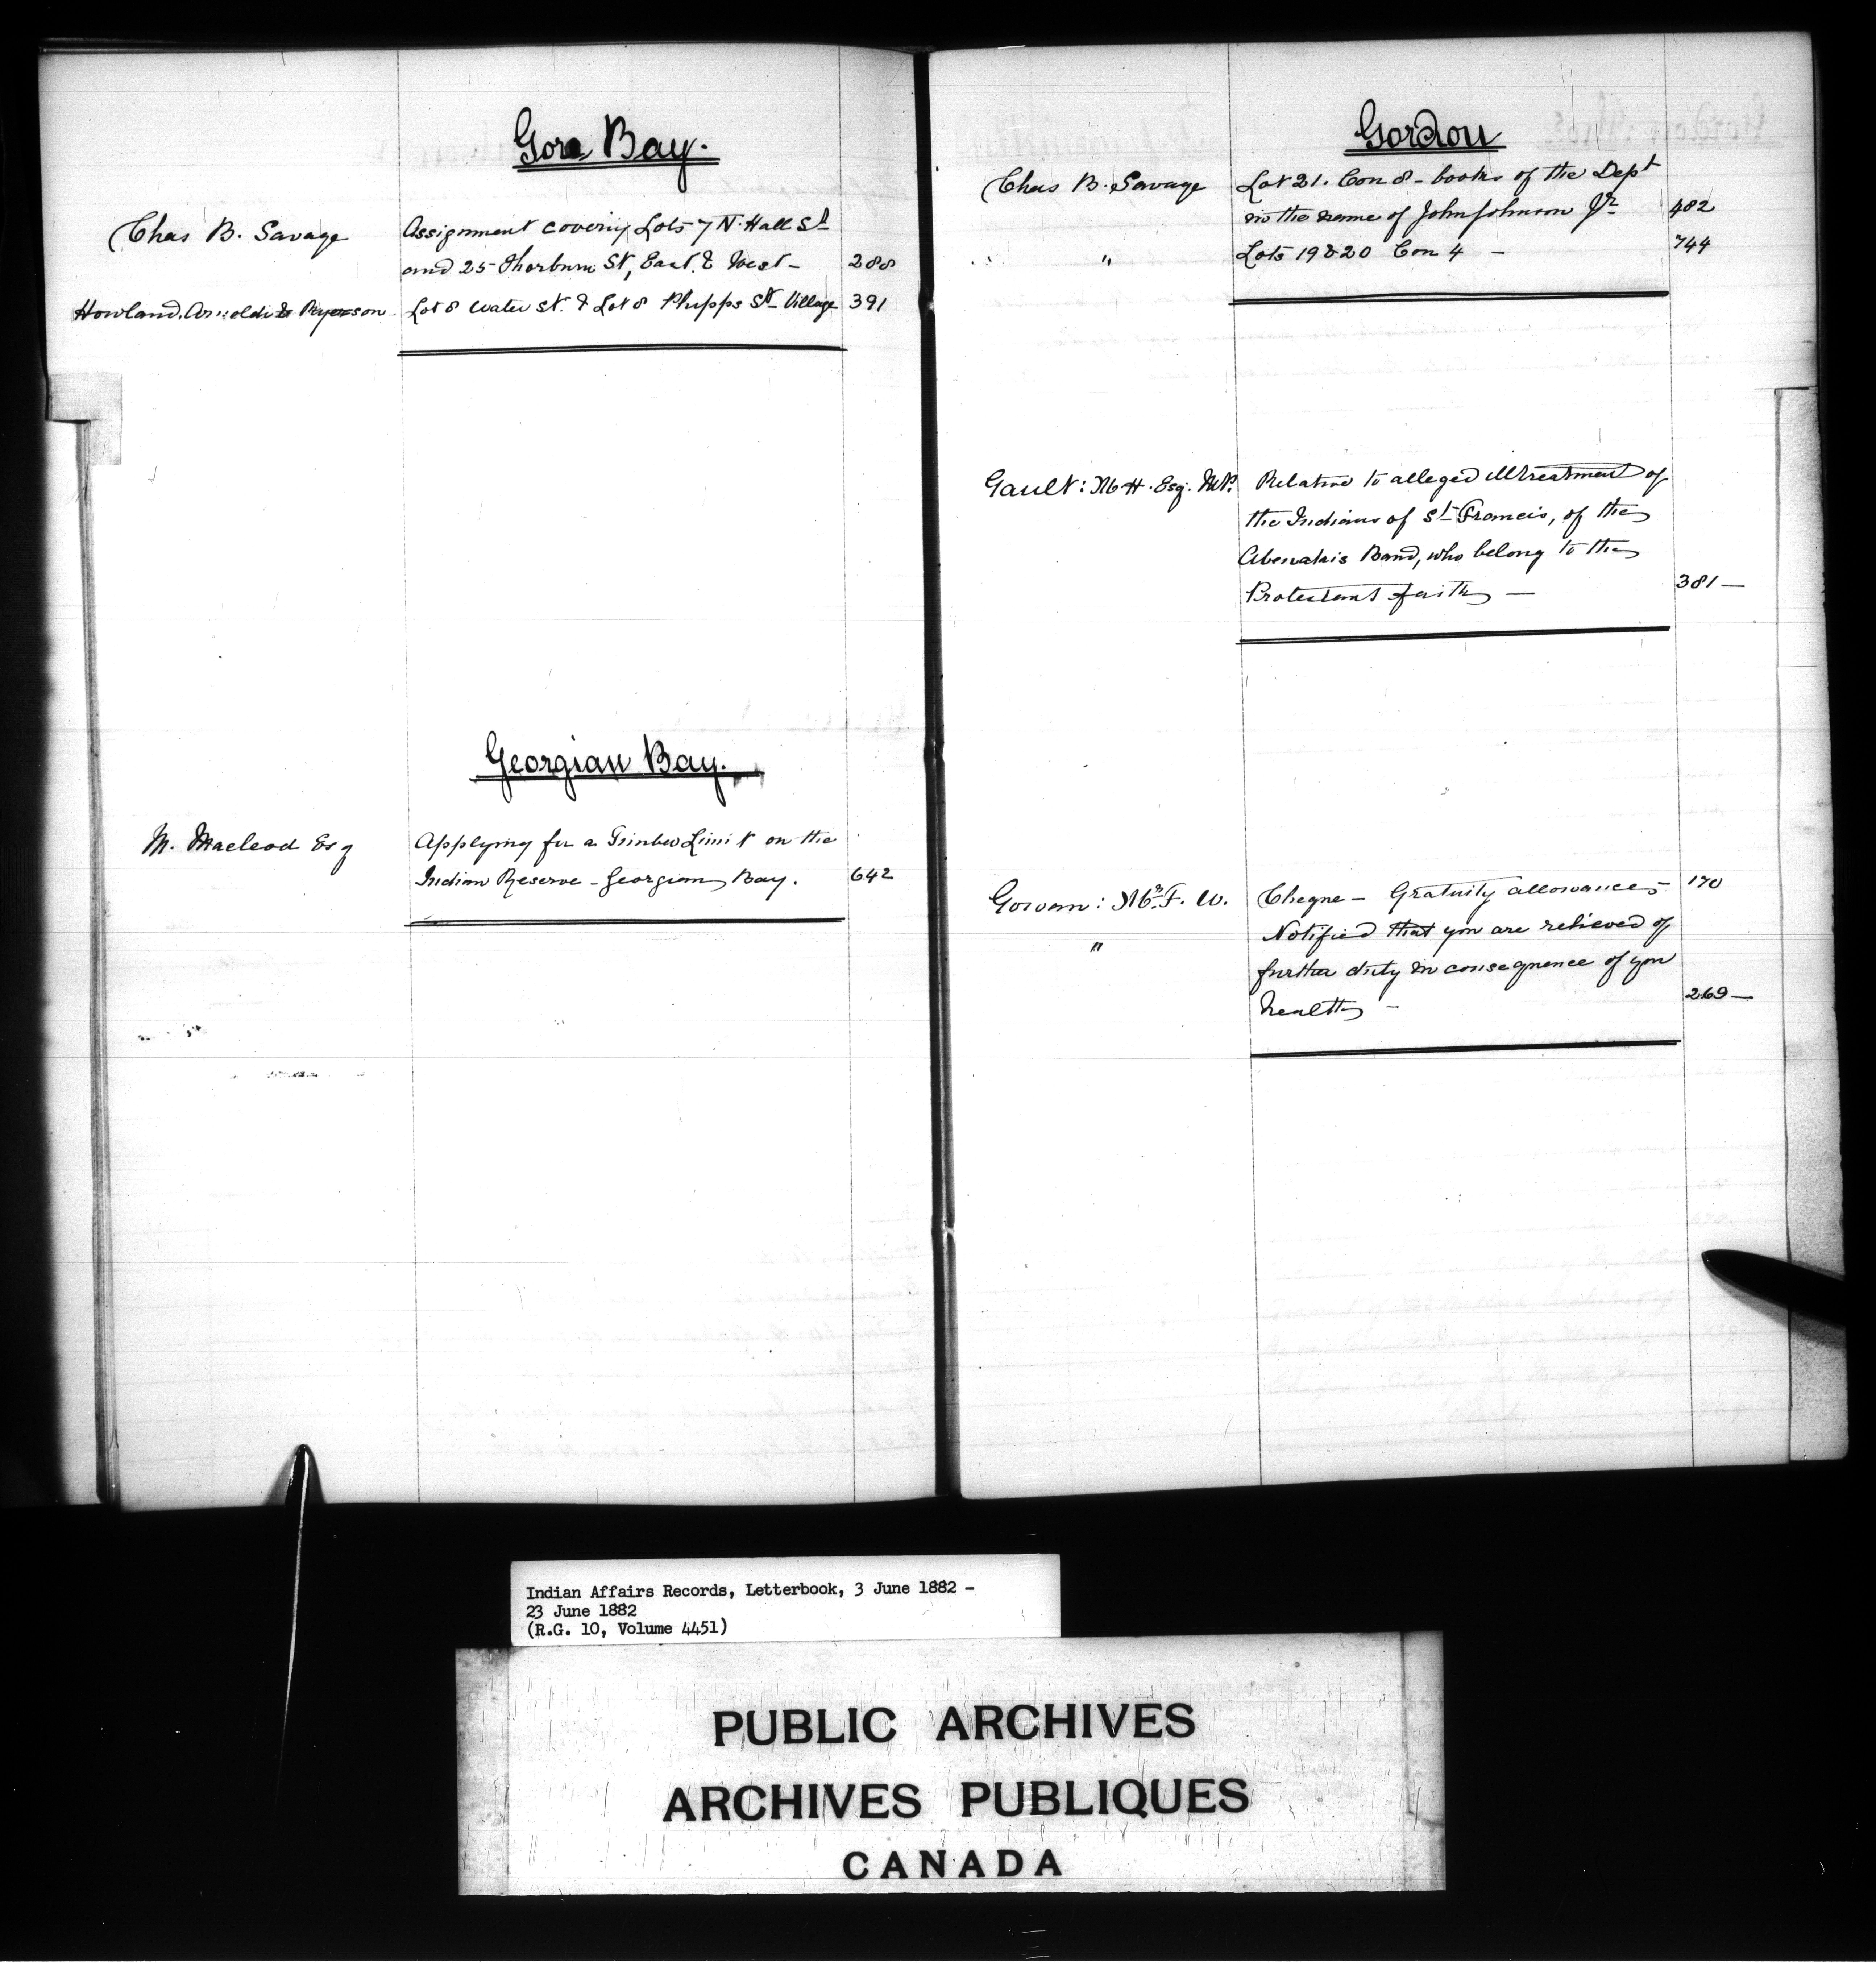 Gore Bay.
Chas B. Savage Assignment covering Lots 7 N. Hall St
and 25 Thorburn St, East & West - 288
Howland, Arnoldi & Ryerson Lot 8 Water St. & Lot 8 Phipps St Village 391
Georgian Bay.
M. Macleod Esq Applying for a Timber Limit on the
Indian Reserve - Georgian Bay. 642
Gordon
Chas B. Savage Lot 21. Con 8 - books of the Dept
in the name of John Johnson Jr. 482
" Lots 19 & 20 Con 4 - 744
Gault: M. H. Esq. M.P. Relative to alleged illtreatment of
the Indians of St Francis, of the
Abenakis Band, who belong to the
Protestant faith - 381 -
Gowan: Mr. F. W. Cheque - Gratuity allowances 170
" Notified that you are relieved of
further duty in consequence of you
health - 269 -
Indian Affairs Records, Letterbook, 3 June 1882 -
23 June 1882
(R.G. 10, Volume 4451)
PUBLIC ARCHIVES
ARCHIVES PUBLIQUES
CANADA